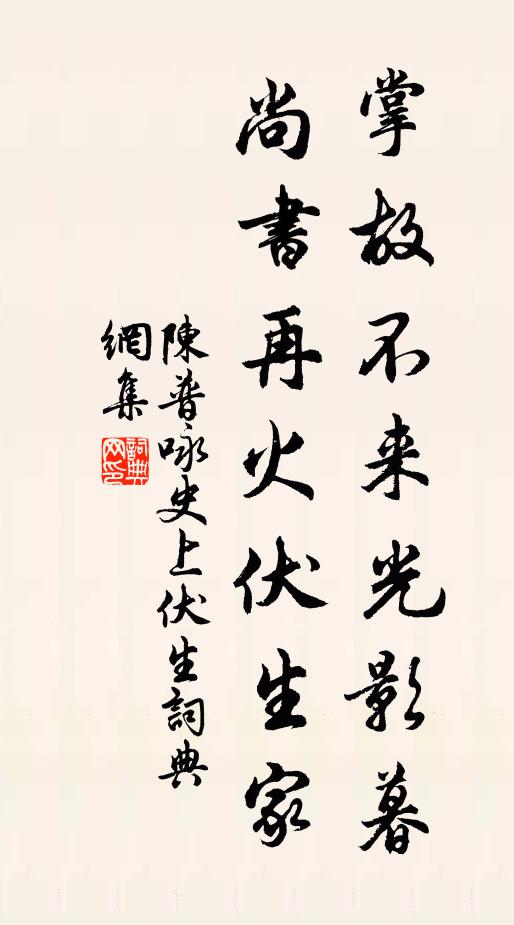 掌故不来光影暮
尚書再火伏生家
陳普咏史上伏生詞典
網集
詞典網印